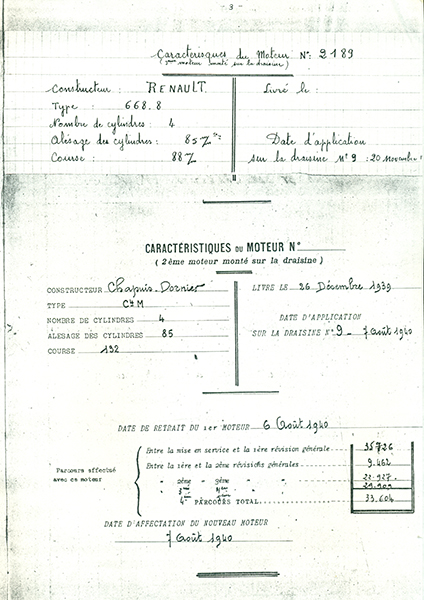 - 3 -
Caractérisques du Moteur N°: 2183
( moteur monté sur la draisine)
Constructeur : RENAULT
Livré le :
Type : 668.8
Nombre de cylindres : 4
Alésage des cylindres : 85
Date d'application
Course : 88
sur la draisine N° 9 : 20 novembre
CARACTÉRISTIQUES DU MOTEUR N°
( 2ème moteur monté sur la draisine )
CONSTRUCTEUR Chapuis-Dornier
LIVRE LE 26 Décembre 1939
TYPE M
NOMBRE DE CYLINDRES 4
DATE D'APPLICATION
ALESAGE DES CYLINDRES 85
SUR LA DRAISINE N° 9 - 7 Août 1940
COURSE 132
DATE DE RETRAIT DU 1er MOTEUR 6 Août 1940
Entre la mise en service et la 1ère révision générale 35726
Parcours effectué avec ce moteur
Entre la 1ère et la 2ème révisions générales 9.462
" 2ème " " " 22.927
4e PARCOURS TOTAL 33.604
DATE D'AFFECTATION DU NOUVEAU MOTEUR
7 Août 1940